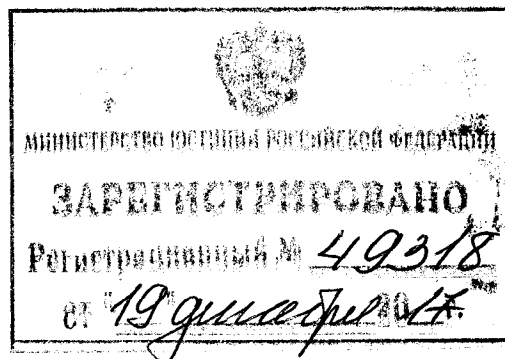 МИНИСТЕРСТВО ЮСТИЦИИ РОССИЙСКОЙ ФЕДЕРАЦИИ
ЗАРЕГИСТРИРОВАНО
Регистрационный № 49318
от "19" декабря 2017.